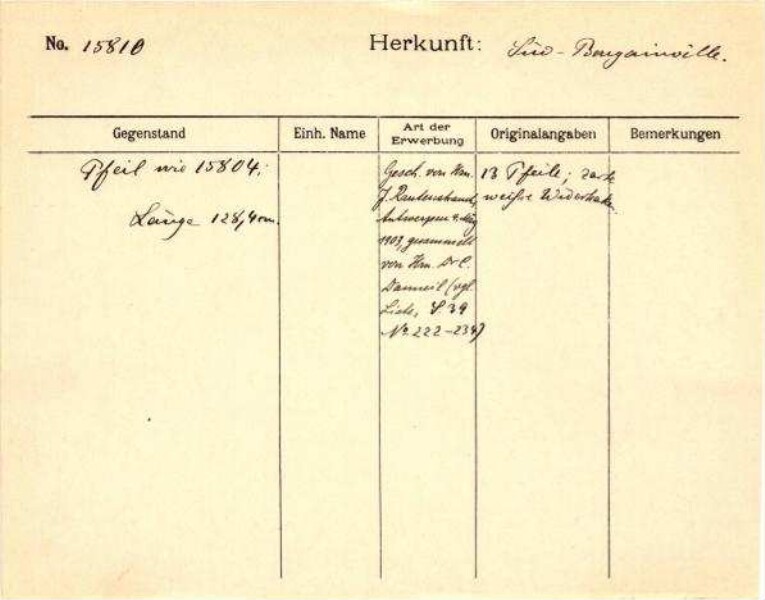 No. 15810
Herkunft: Süd-Bougainville.
Gegenstand
Einh. Name
Art der
Erwerbung
Originalangaben
Bemerkungen
Pfeil wie 15804;
Länge 128,4 cm.
Gesch. von Hrn.
J. Rautenstrauch,
Antwerpen
1903, gesammelt
von Hrn. Dr C.
Danneil (vgl.
Liste, S 39
No. 222-234)
13 Pfeile; zarte
weiße Widerhaken